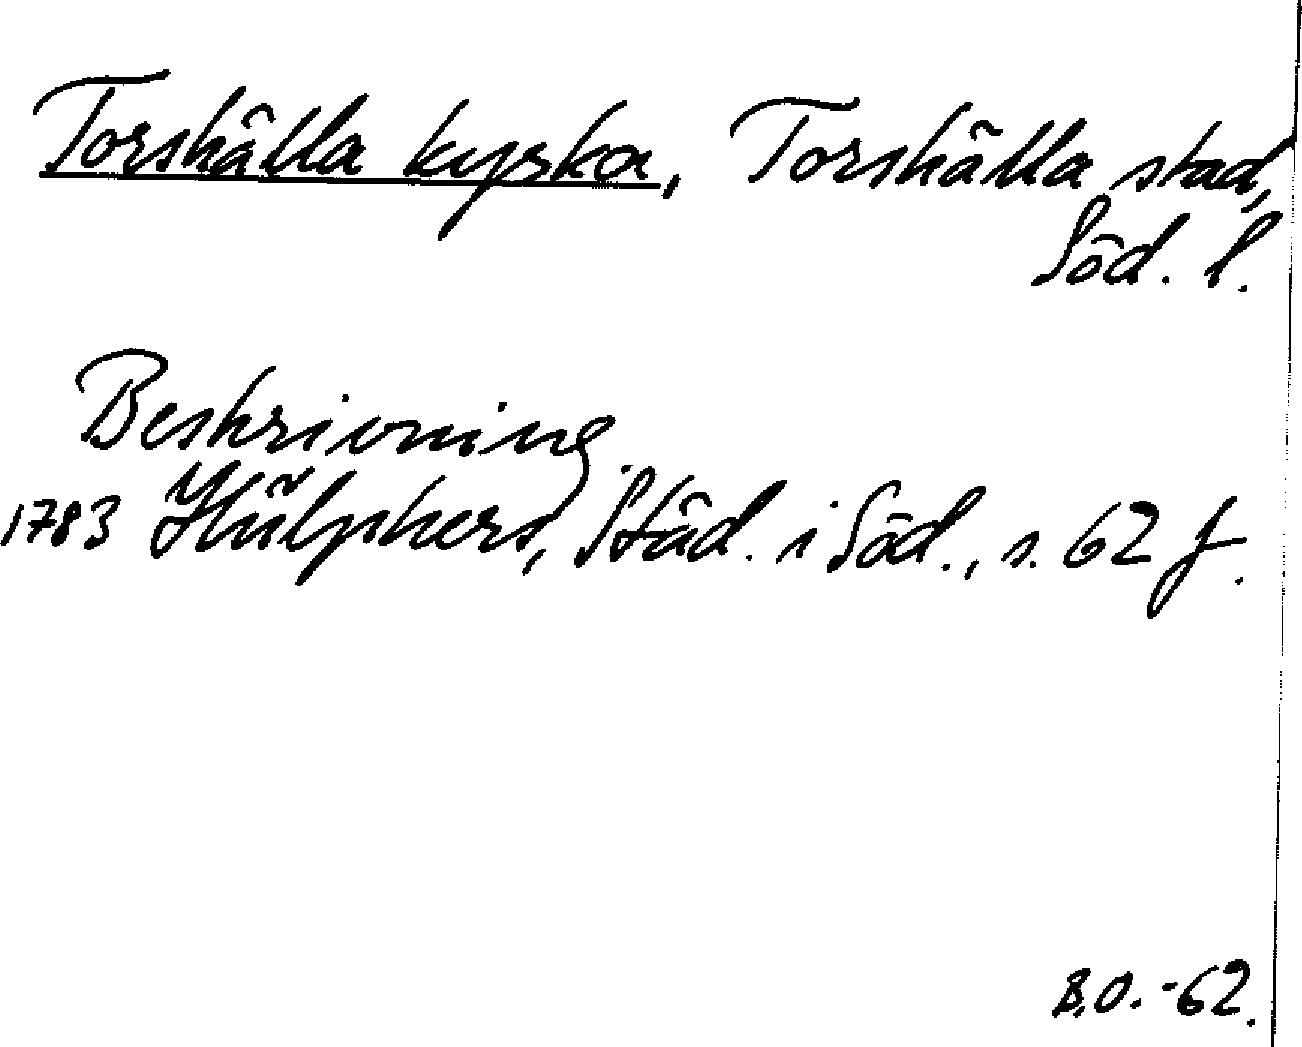 Torshälla kyrka, Torshälla stad,
Söd. l.
Beskrivning.
1783 Hülphers, Städ. i Söd., s. 62 f.
B.O. -62.